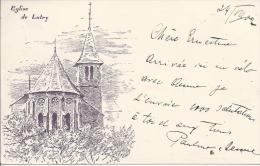 Eglise
de Lutry
Chère Ernestine
Arrivée ici en vélo
avec Jeanne je
t'envoie nos salutations
à toi et aux tiens